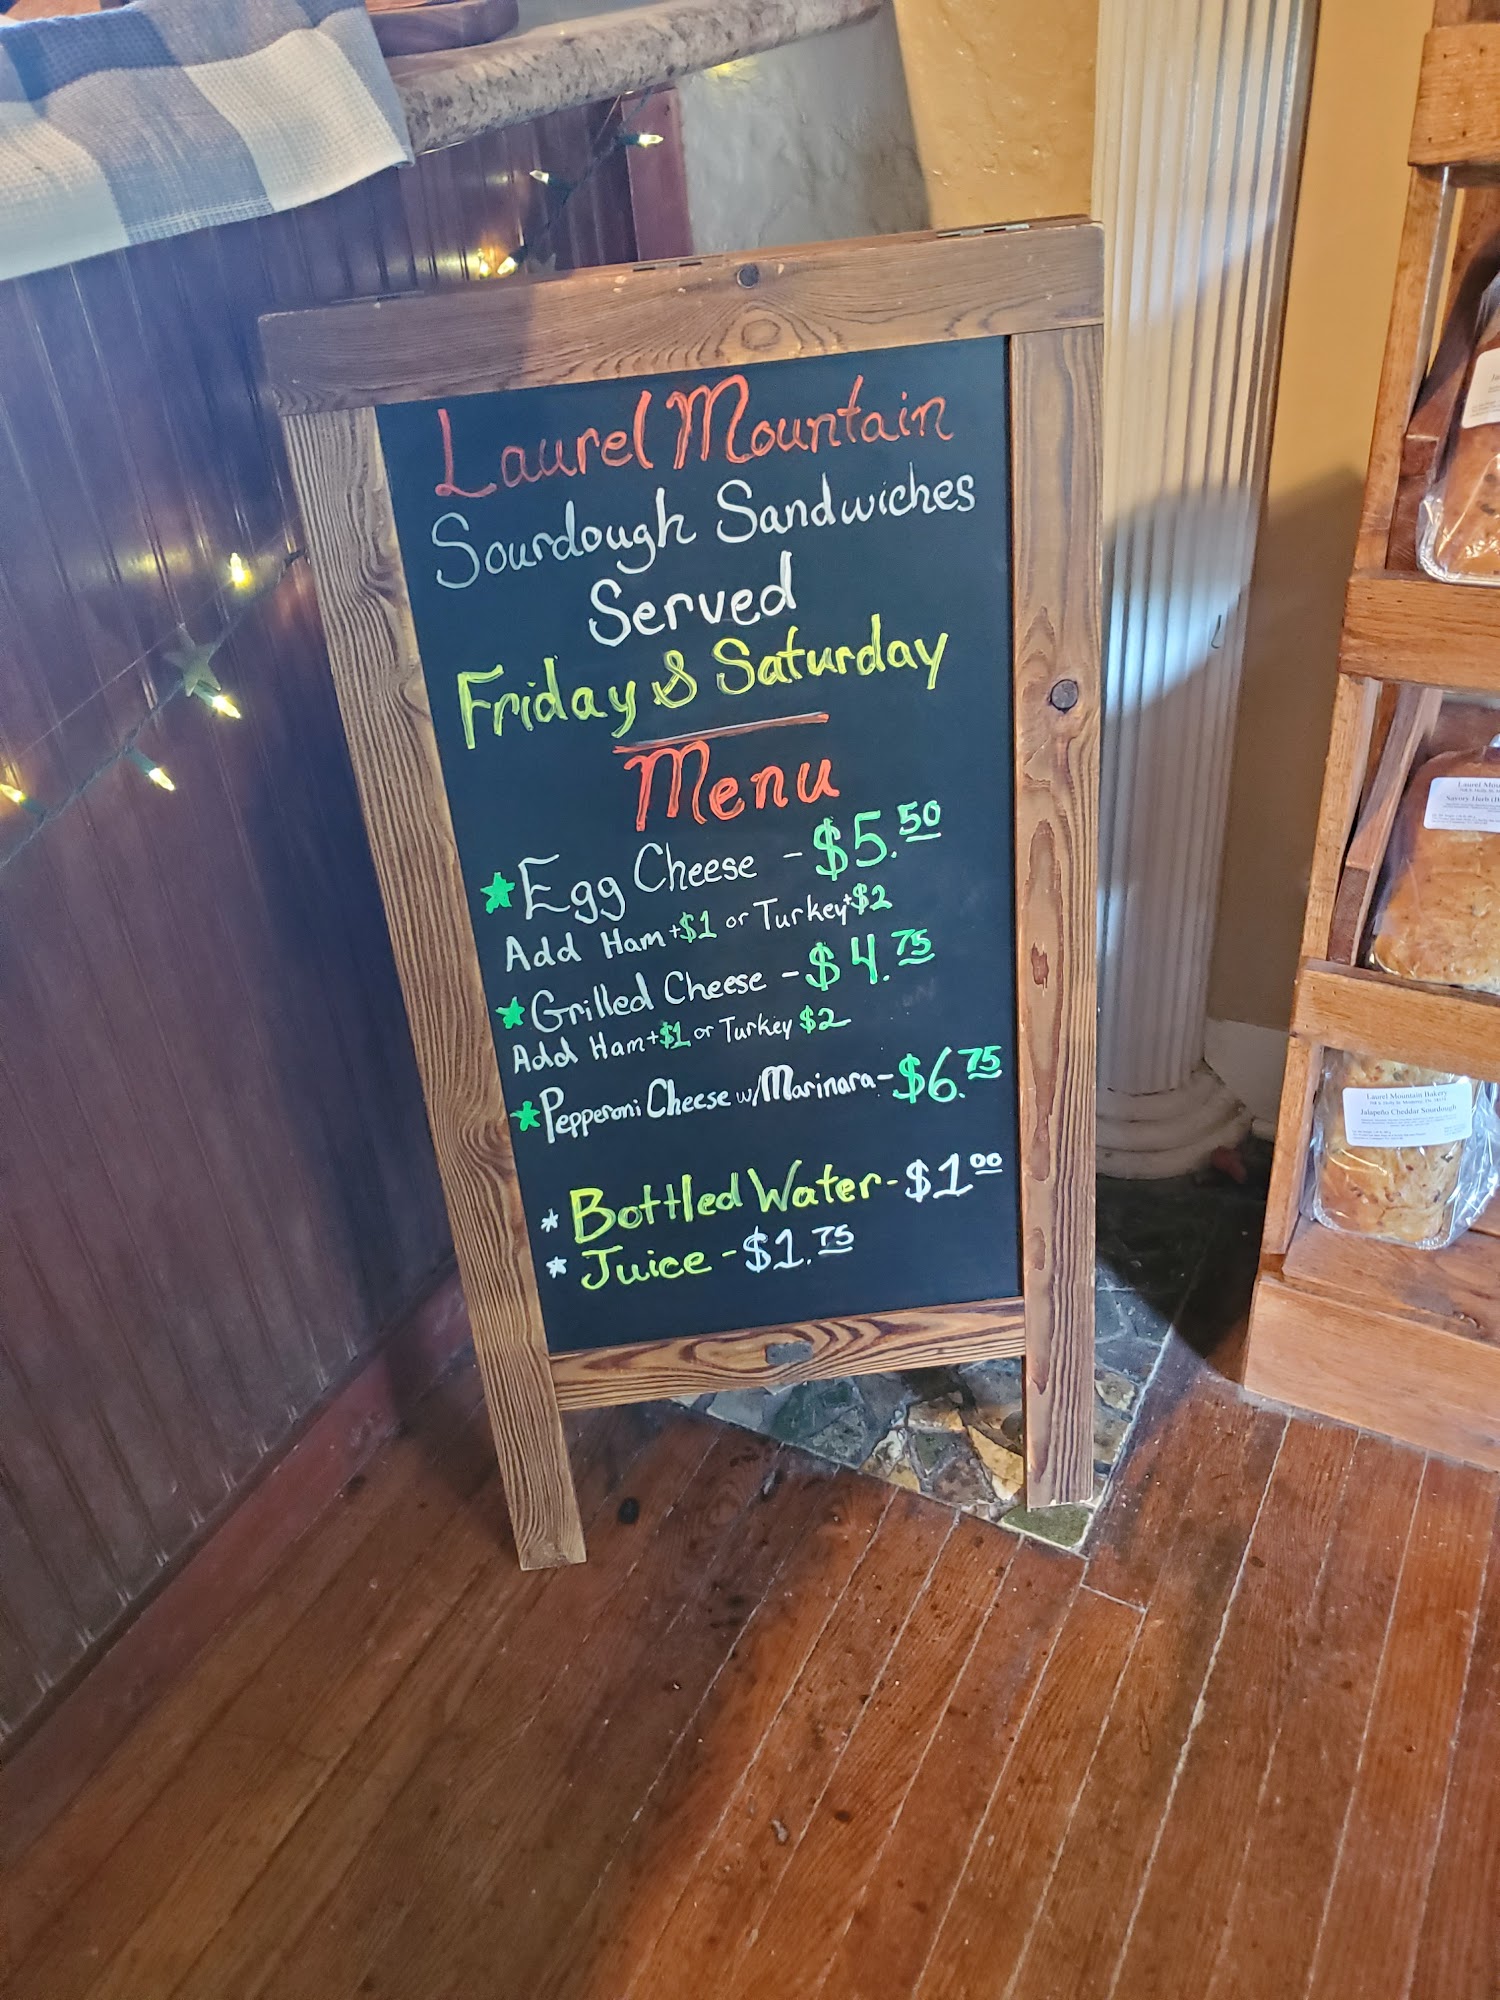 Laurel Mountain
Sourdough Sandwiches
Served
Friday & Saturday
Menu
Egg Cheese - $5.50
Add Ham +$1 or Turkey +$2
Grilled Cheese - $4.75
Add Ham +$1 or Turkey $2
Pepperoni Cheese w/Marinara - $6.75
Bottled Water - $1.00
Juice - $1.75
Laurel Mou
Savory Herb
Laurel Mountain Bakery
Jalapeño Cheddar Sourdough